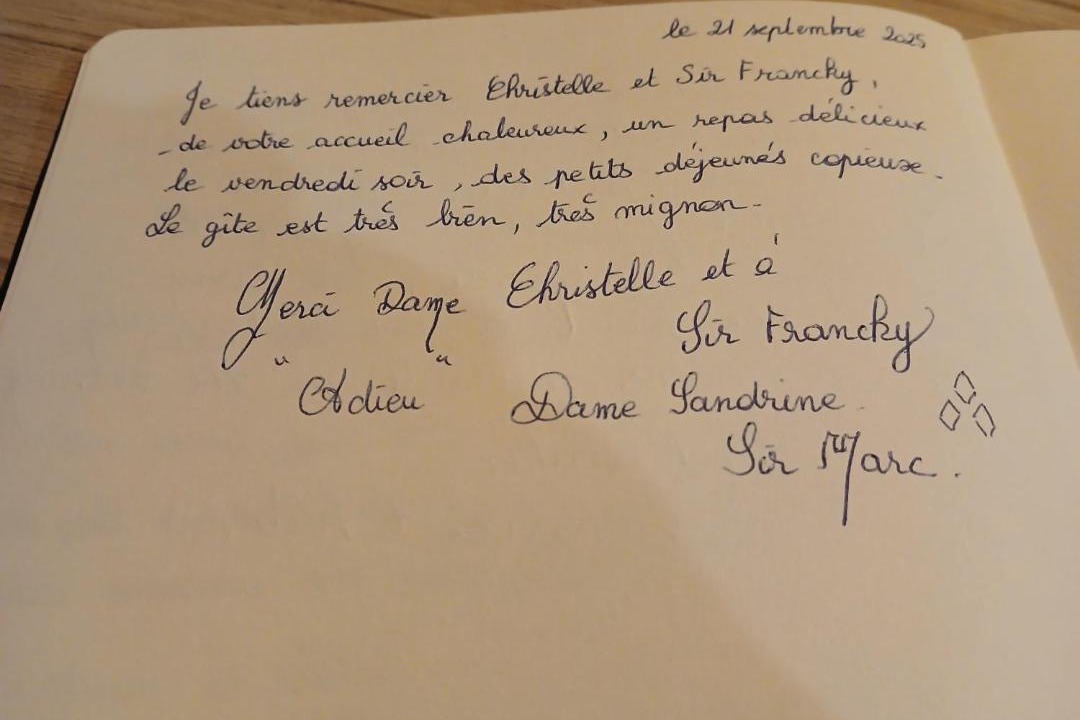 le 21 septembre 2025
Je tiens remercier Christelle et Sir Francky,
de votre accueil chaleureux, un repas délicieux
le vendredi soir, des petits déjeunés copieuse.
Le gîte est très bien, très mignon.
Merci Dame Christelle et à
Sir Francky
"Adieu" Dame Sandrine
Sir Marc.